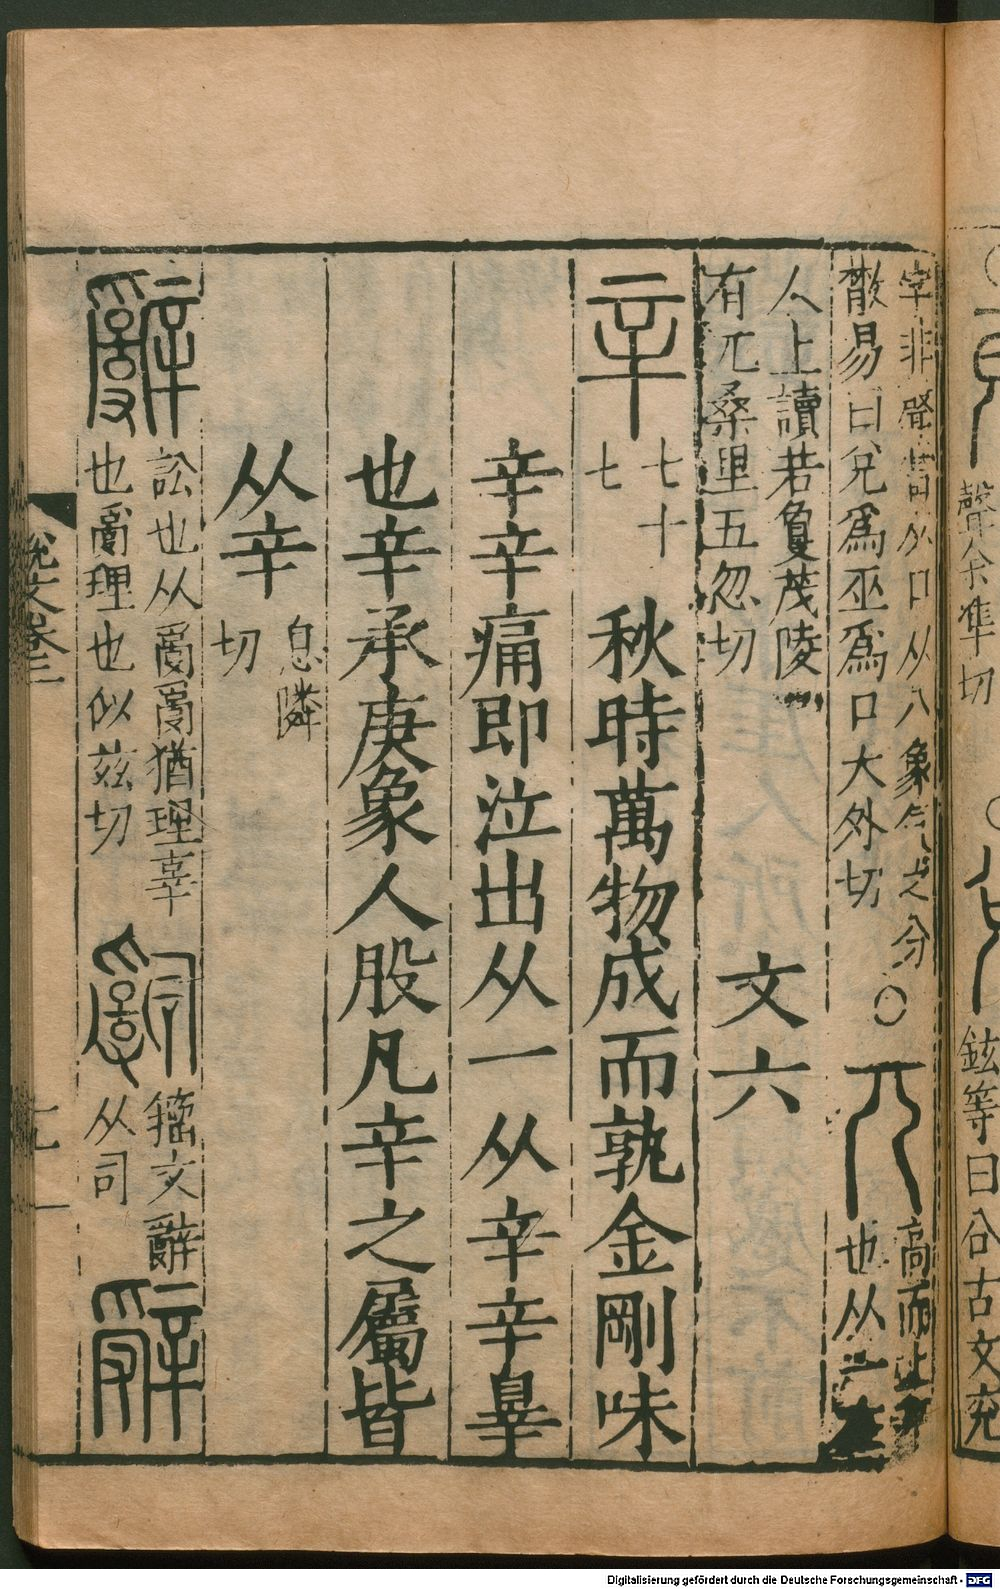 聲余準切
鉉等曰㕣古文兊
字非聲當从口从八象气之分○兀高而上
散易曰兌爲巫爲口大外切
也从一
人上讀若敻茂陵
有兀桑里五忽切
文六
辛
七十
七
秋時萬物成而孰金剛味
辛辛痛即泣出从一从辛辛辠
也辛承庚象人股凡辛之屬皆
从辛
息隣
切
辭訟也从𤔔𤔔猶理辜
也𤔔理也似兹切
𤔲籒文辭
从司
辤
說文卷三